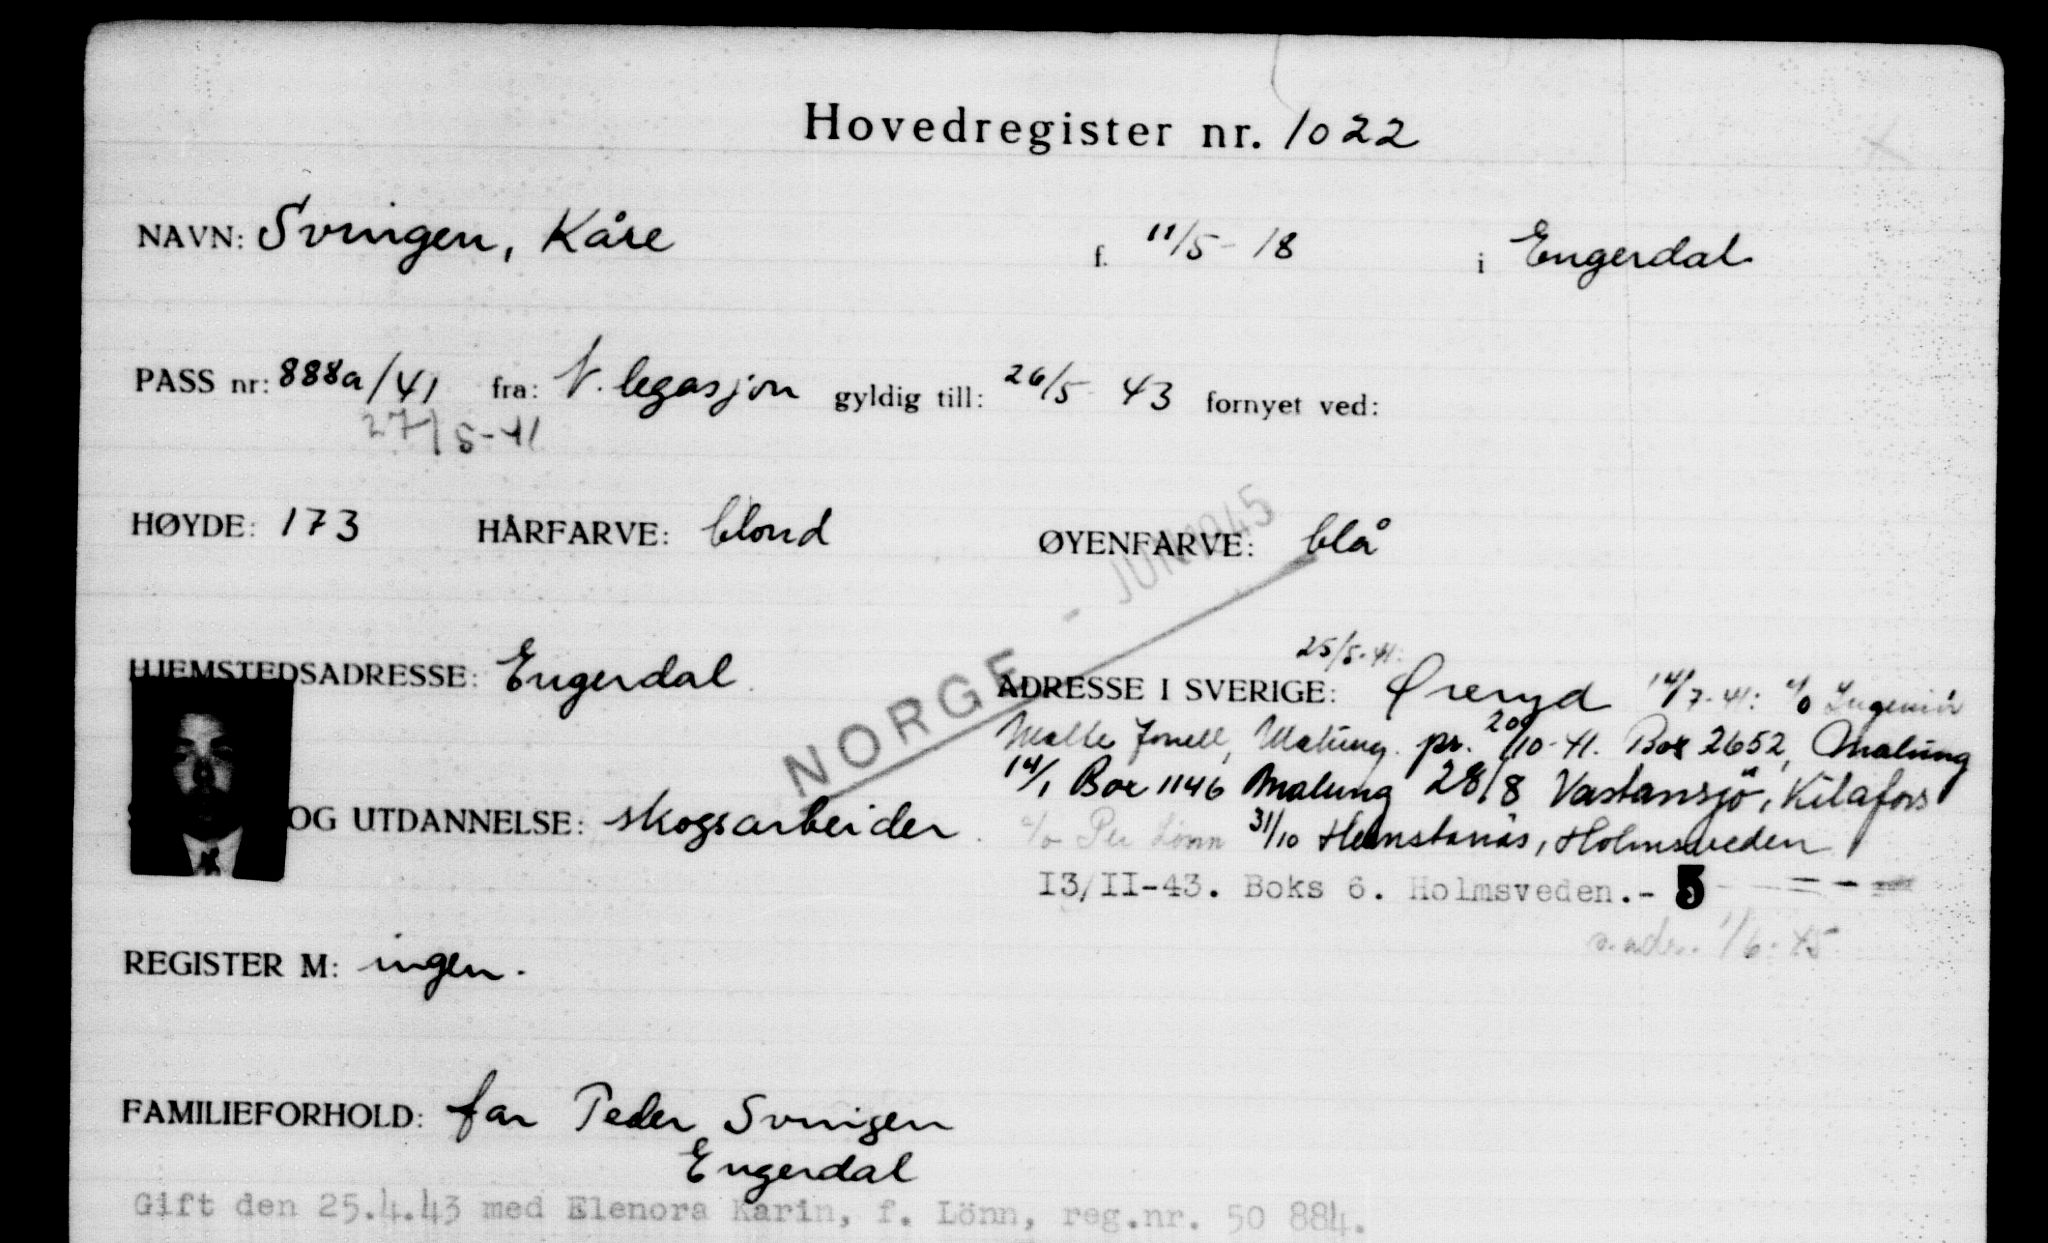 Hovedregister nr. 1022
NAVN: Svingen, Kåre f. 11/5-18 i Engerdal
PASS nr: 888a/41 fra: N. legasjon gyldig till: 26/5-43 fornyet ved:
27/5-41
HØYDE: 173 HÅRFARVE: blond ØYENFARVE: blå
NORGE - JUNI 1945
25/5-41:
HJEMSTEDSADRESSE: Engerdal. ADRESSE I SVERIGE: Øreryd 14/7-41: c/o Ingeniör
Malte Jonell, Malung. pr. 20/10-41. Box 2652, Malung
14/1 Box 1146 Malung 28/8 Vastansjö, Kilafors
OG UTDANNELSE: skogsarbeider. c/o Per Lönn 31/10 Hemstanäs, Holmsveden
I3/II-43. Boks 6. Holmsveden.- 5
REGISTER M: ingen. 1/6-45
FAMILIEFORHOLD: far Peder Svingen
Engerdal
Gift den 25.4.43 med Elenora Karin, f. Lönn, reg.nr. 50 884.